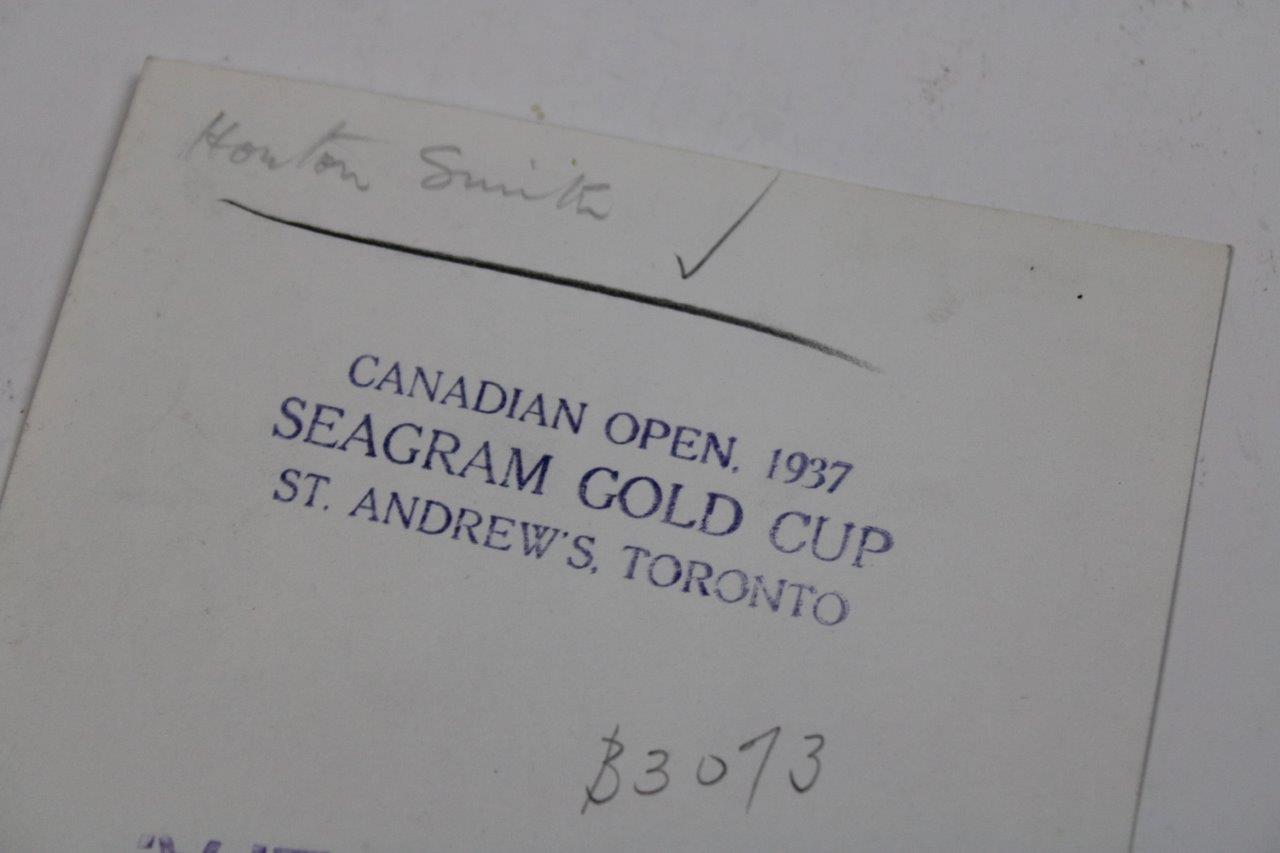 Horton Smith ✓
CANADIAN OPEN, 1937
SEAGRAM GOLD CUP
ST. ANDREW'S, TORONTO
B3073